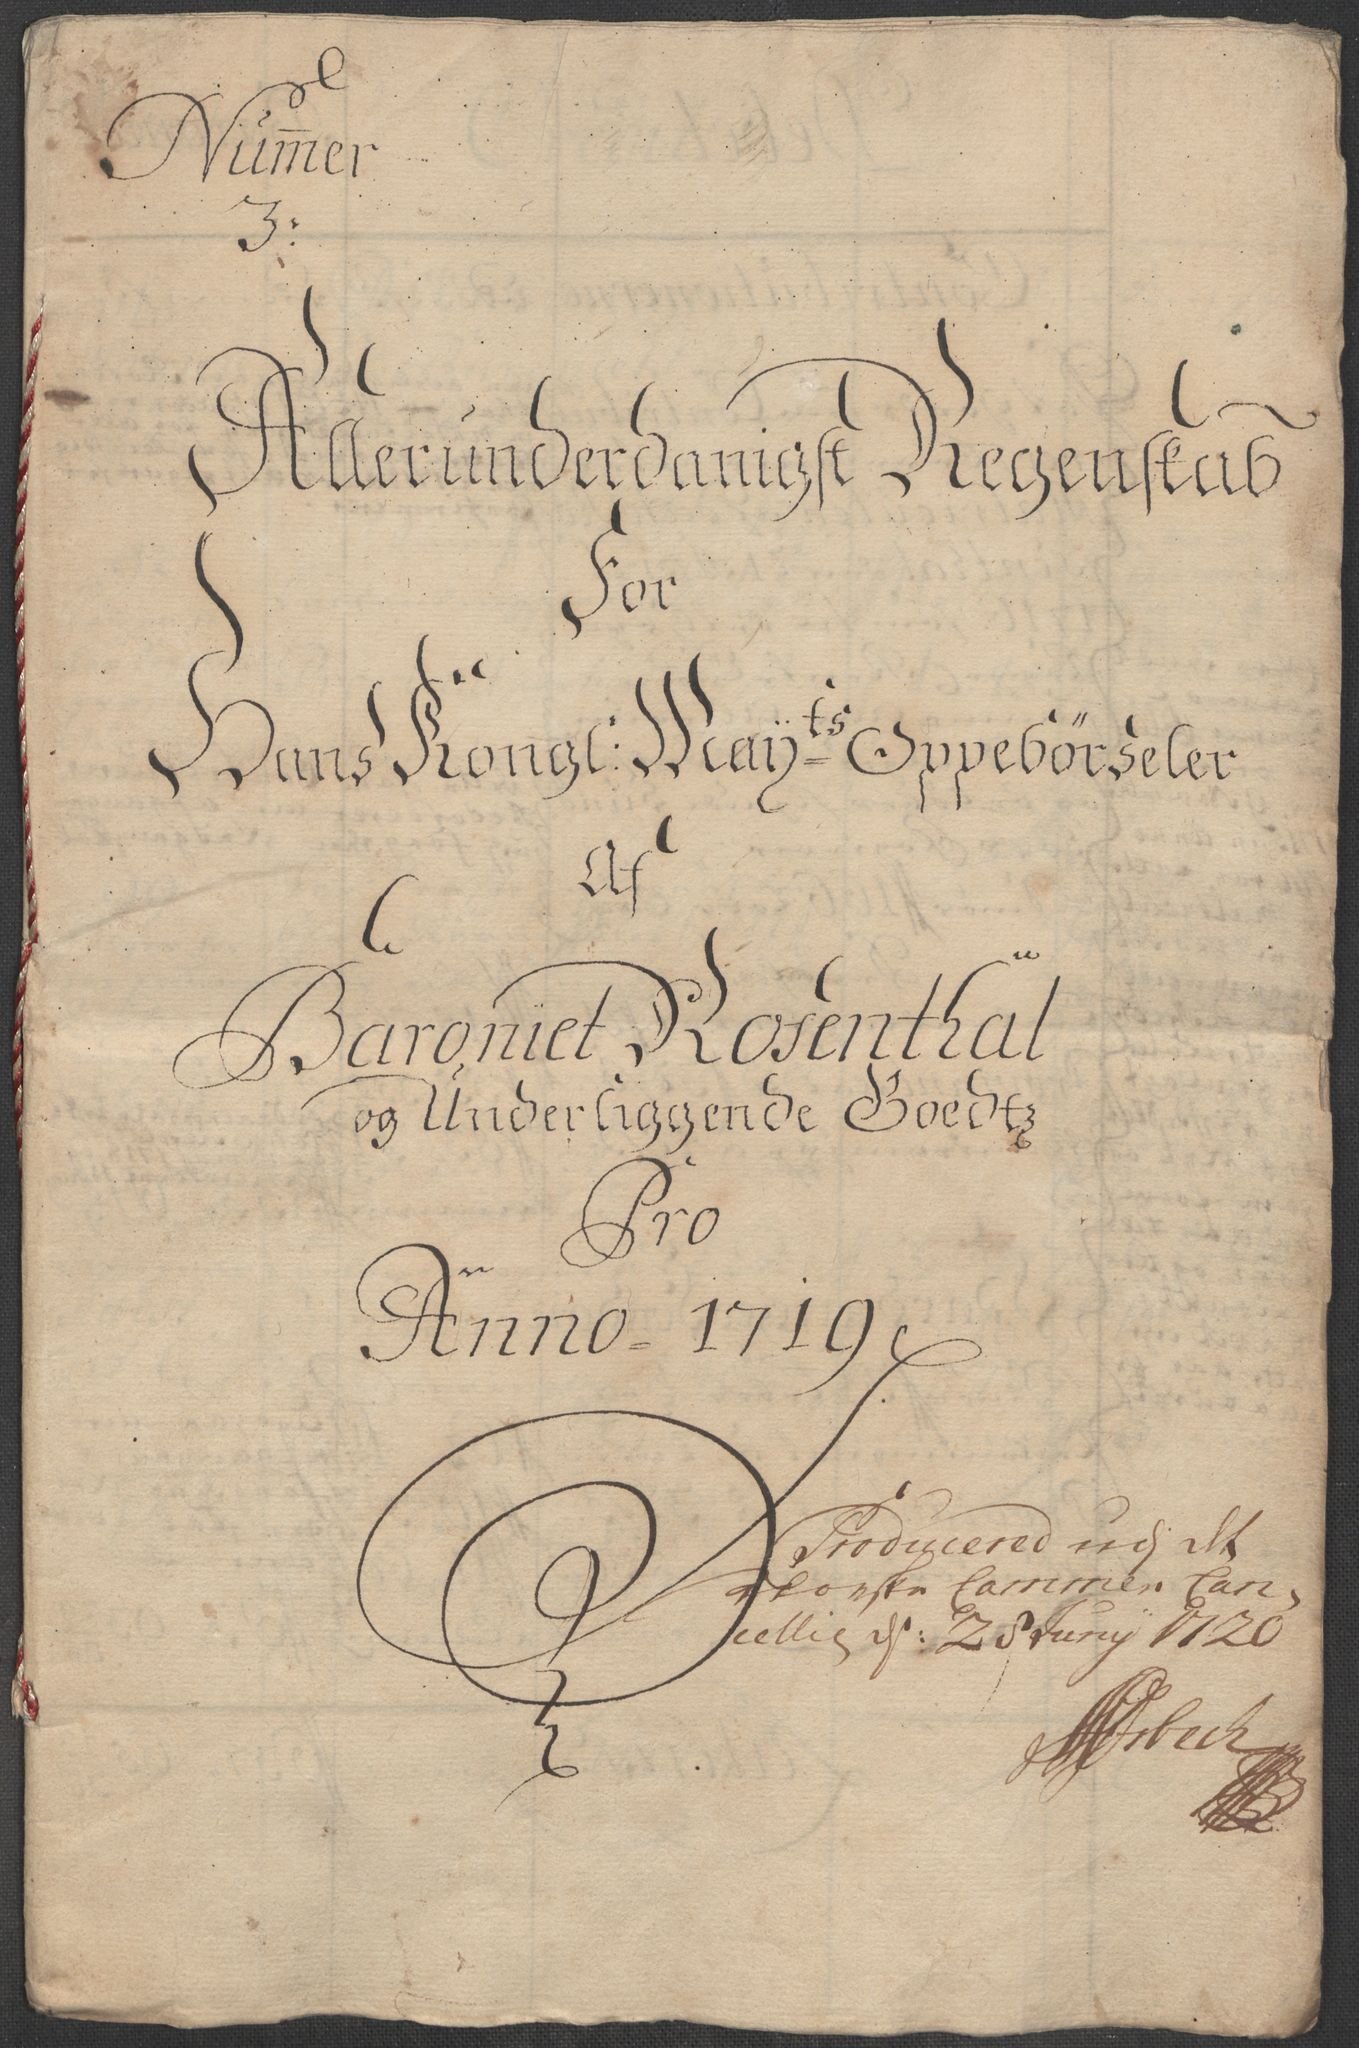 Num̅er
3:
Allerunderdanigst Regenskab
For
Hans Kongl: Maÿ^ts Oppebörseler
Af
Baroniet Rosenthal
og Underliggende Goedtz
Pro
Anno = 1719
Producered udj det
Norske Cammer Can,
cellie d: 28 Junÿ 1720